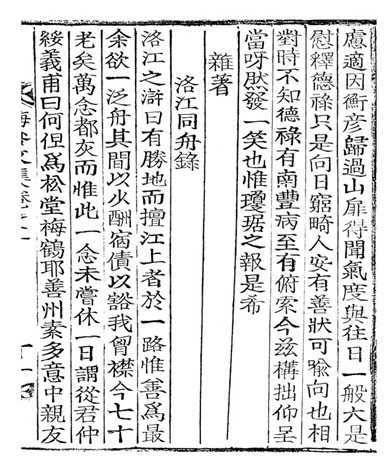 慮適因衡彦歸過山扉得聞氣度與往日一般六是
慰釋德祿只是向日窮畸人安有善狀可喩向也相
對時不知德祿有南豐病至有俯索今玆搆拙仰呈
當呀然發一笑也惟瓊琚之報是希
雜著
洛江同舟錄
洛江之滸曰有勝地而擅江上者於一路惟善爲最
余欲一泛舟其間以少酬宿債以豁我胷襟今七十
老矣萬念都灰而惟此一念未嘗休一日謂從君仲
綏義甫曰何但爲松堂梅鶴耶善州素多意中親友